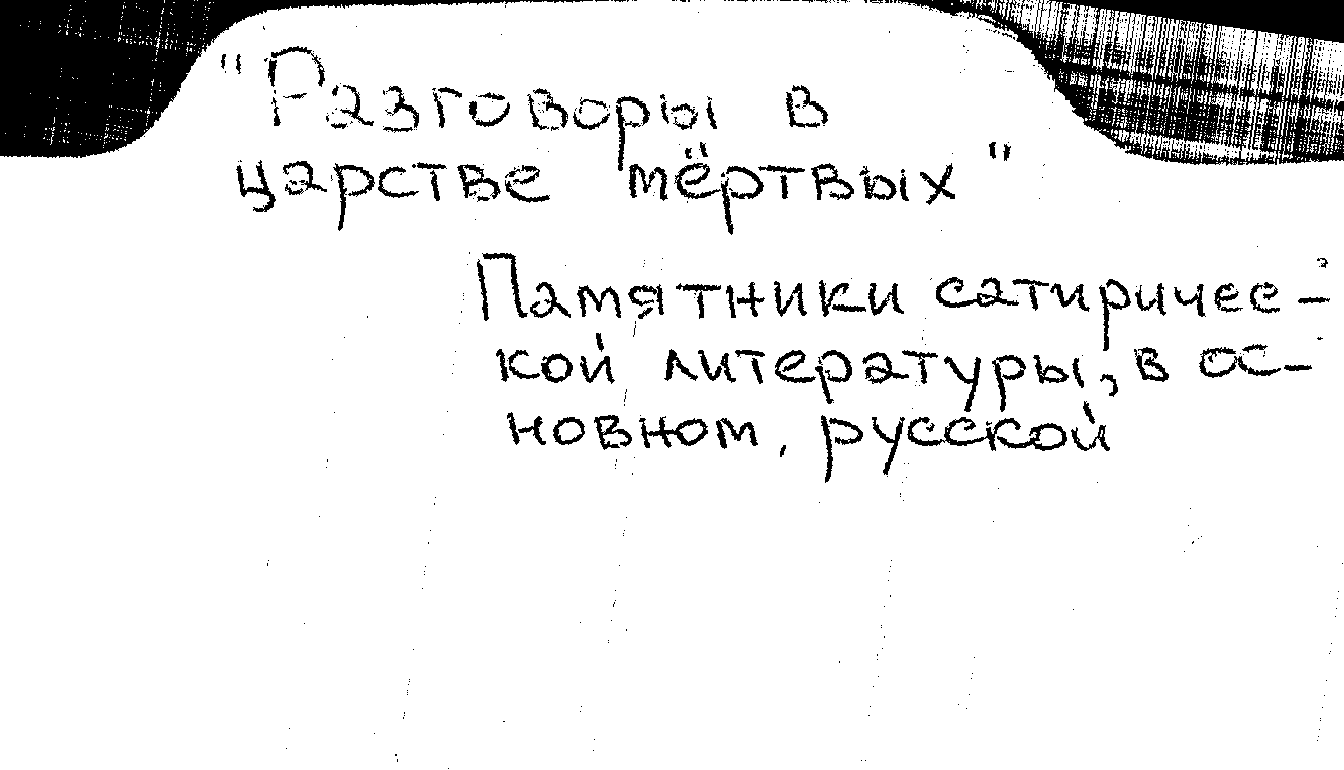 "Разговоры в
царстве мёртвых"
Памятники сатиричес-
кой литературы, в ос-
новном, русской